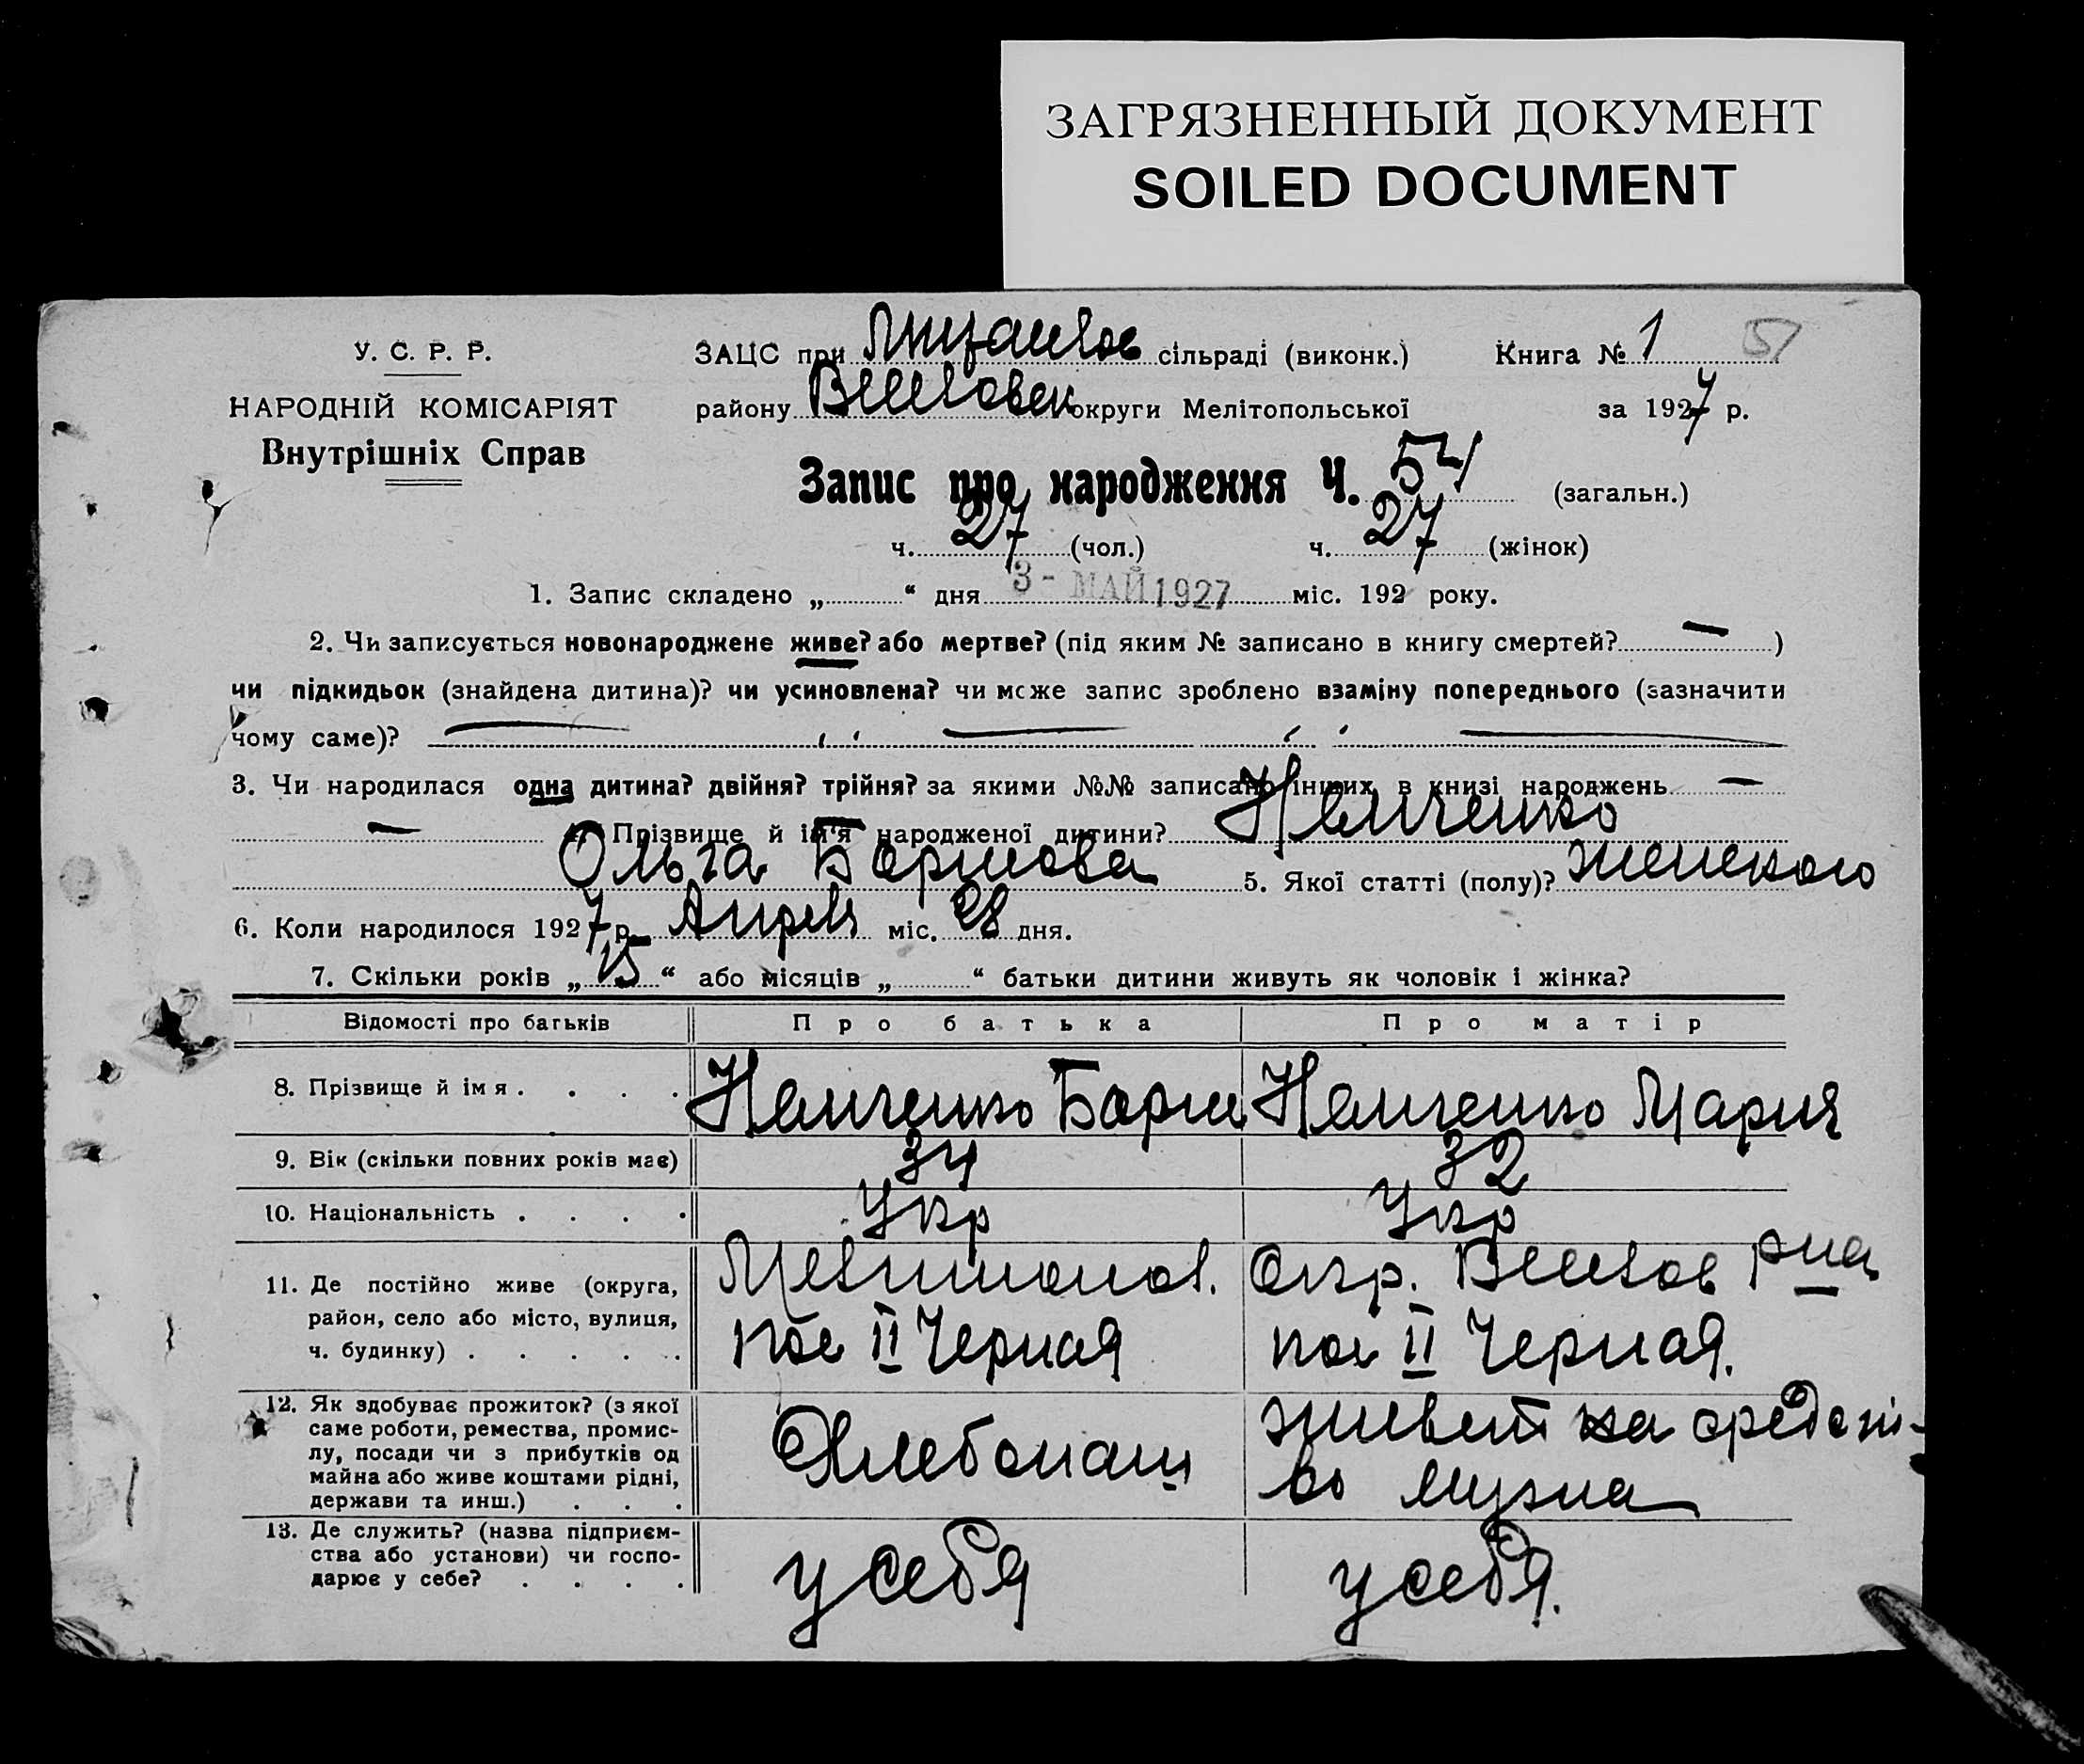 ЗАГРЯЗНЕННЫЙ ДОКУМЕНТ
SOILED DOCUMENT
У. С. Р. Р.
НАРОДНІЙ КОМІСАРІЯТ
Внутрішніх Справ
ЗАЦС при сільраді (виконк.) Книга № 1 51
району округи Мелітопольської за 1927 р.
Запис про народження Ч. 54 (загальн.)
ч. 27 (чол.) ч. 27 (жінок)
1. Запис складено „ “ дня 3 - МАЙ 1927 міс. 192 року.
2. Чи записується новонароджене живе? або мертве? (під яким № записано в книгу смертей? — )
чи підкидьок (знайдена дитина)? чи усиновлена? чи може запис зроблено взаміну попереднього (зазначити
чому саме)?
3. Чи народилася одна дитина? двійня? трійня? за якими №№ записано інших в книзі народжень —
— 4. Прізвище й ім'я народженої дитини? Немченко
Ольга Борисова 5. Якої статті (полу)? женского
6. Коли народилося 1927 р. Апреля міс. 28 дня.
7. Скільки років „ 15 “ або місяців „ “ батьки дитини живуть як чоловік і жінка?
Відомості про батьків Про батька Про матір
8. Прізвище й імя . . . . Немченко Борис Немченко Мария
9. Вік (скільки повних років має) 34 32
10. Національність . . . . Укр Укр
11. Де постійно живе (округа, Мелитопол. Окр. рна
район, село або місто, вулиця, пос II Черная пос II Черная.
ч. будинку) . . . . .
12. Як здобуває прожиток? (з якої
саме роботи, ремества, промис-
лу, посади чи з прибутків од
майна або живе коштами рідні,
держави та инш.) . . .
Хлебопаш живет на средст-
во мужа
13. Де служить? (назва підприєм-
ства або установи) чи госпо-
дарює у себе? . . . .
у себя у себя.